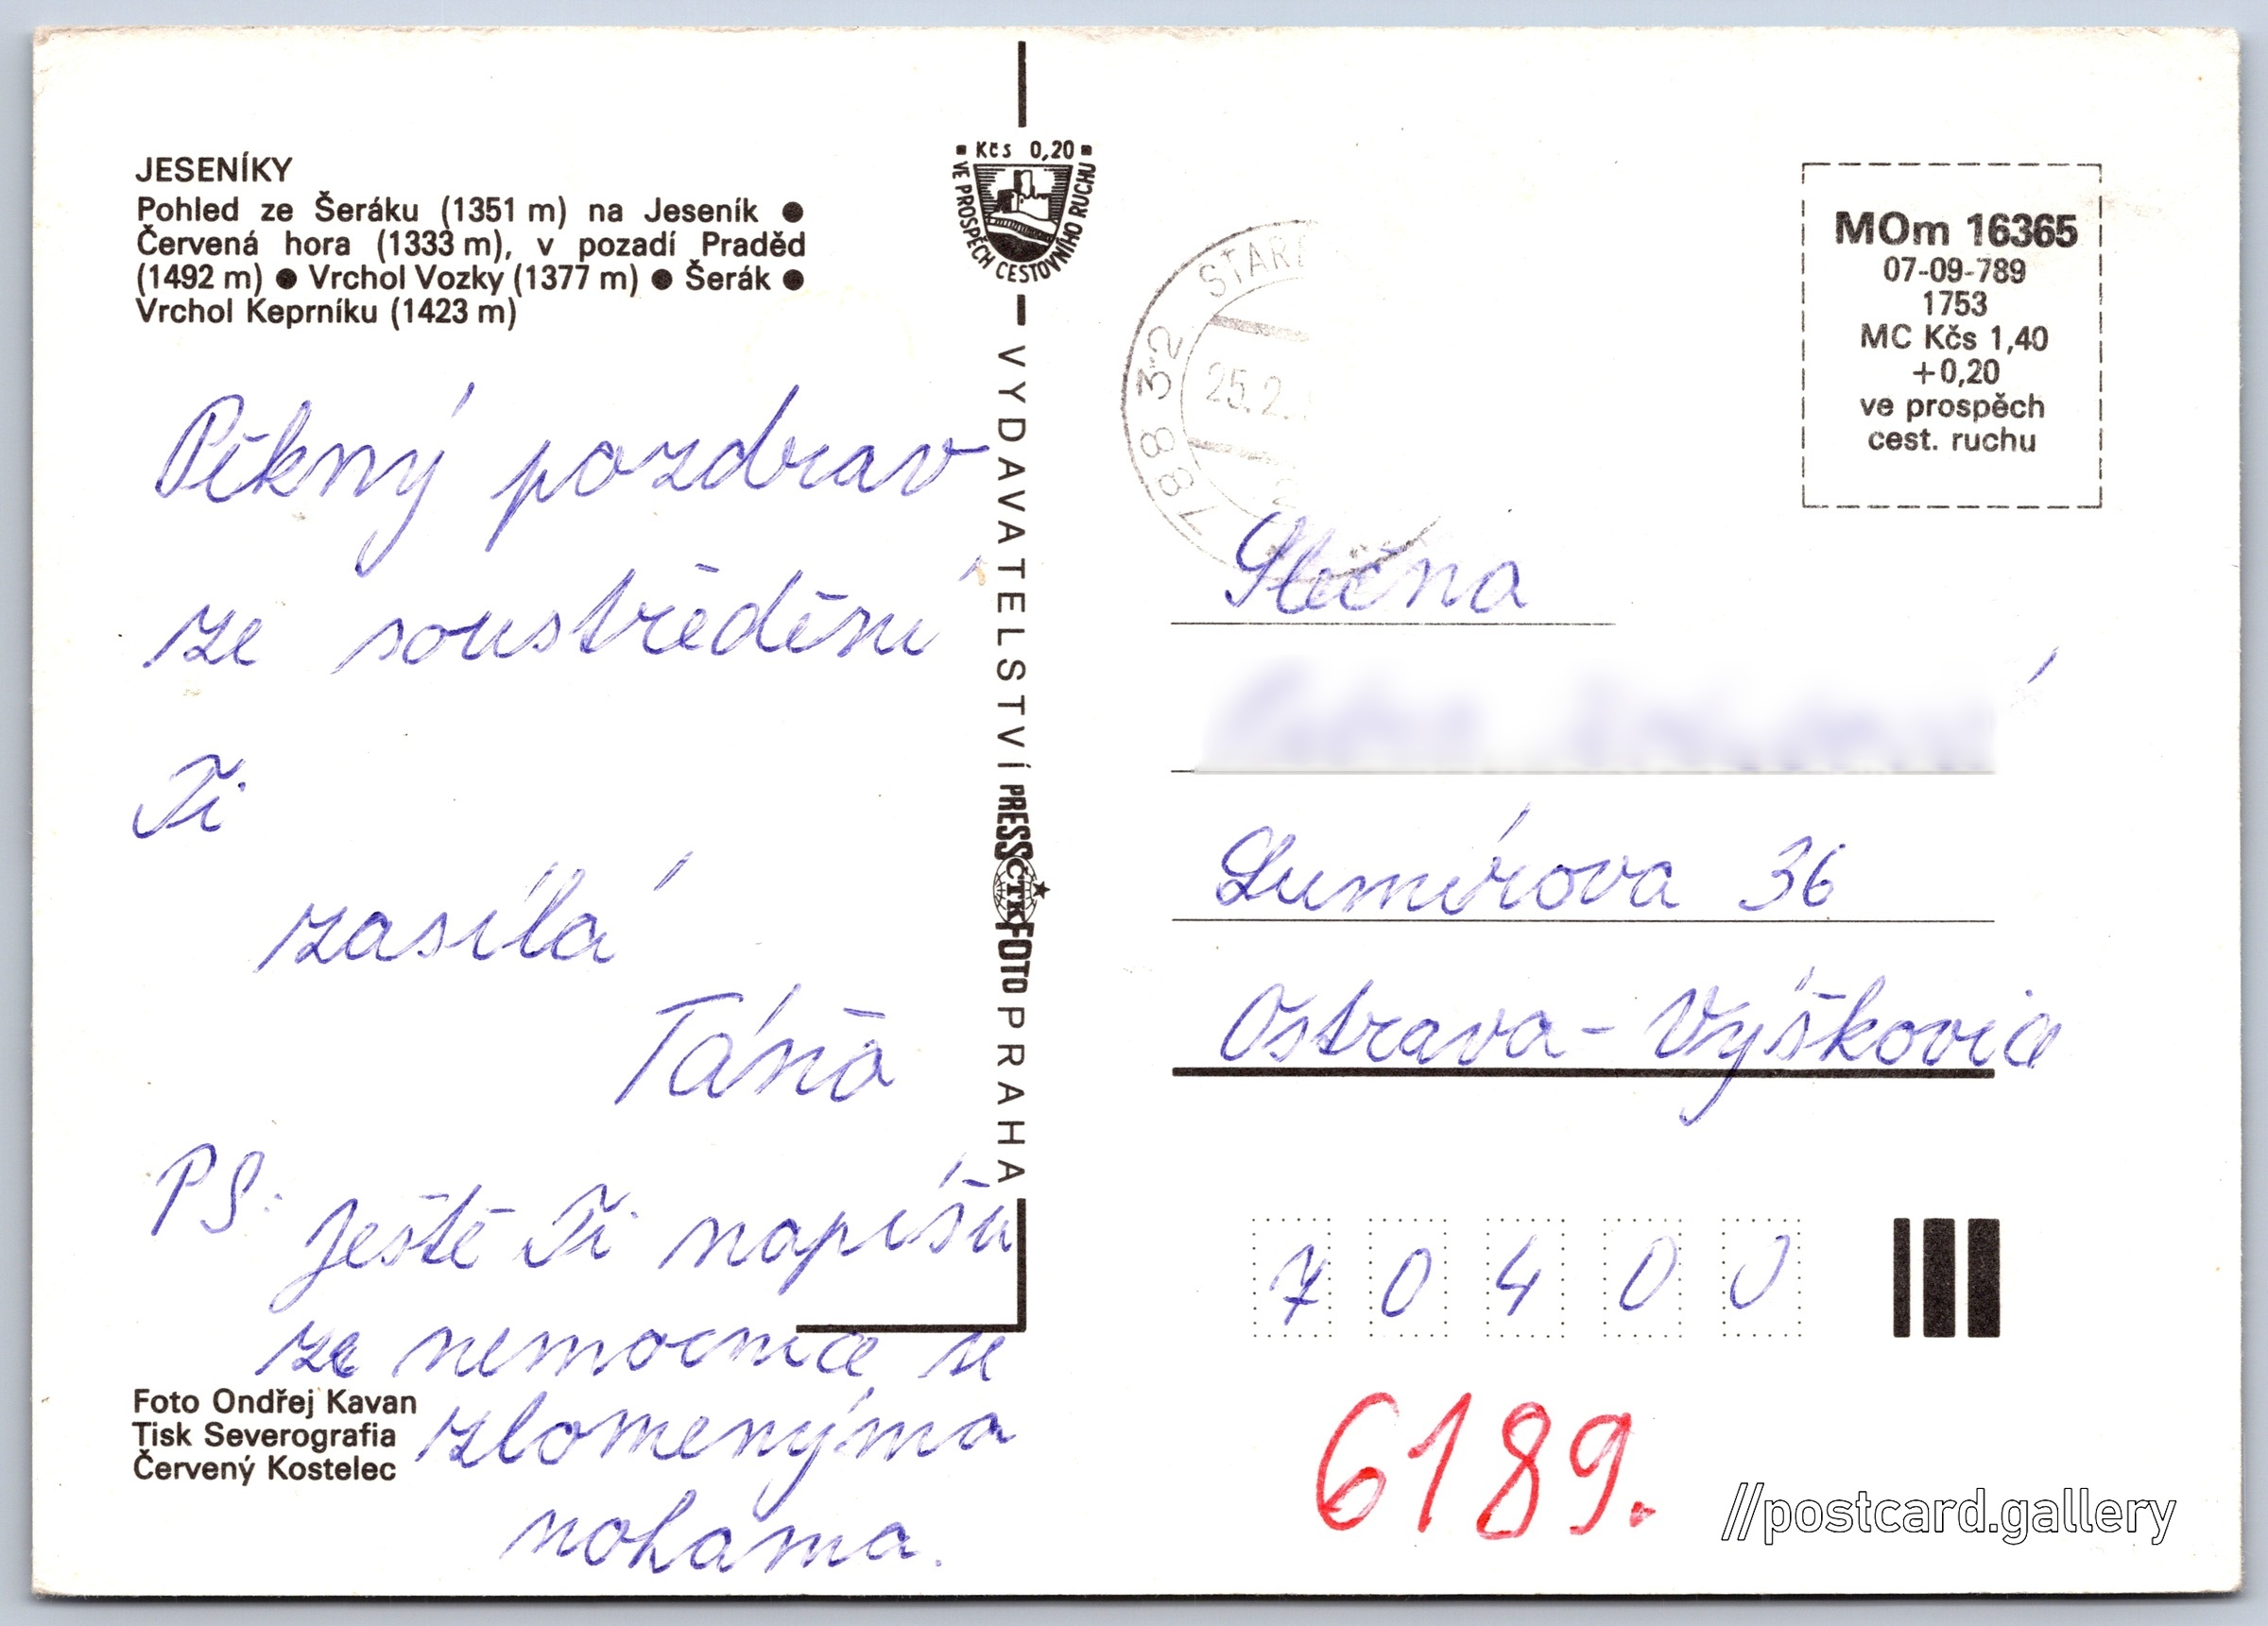 JESENÍKY
Pohled ze Šeráku (1351 m) na Jeseník ●
Červená hora (1333 m), v pozadí Praděd
(1492 m) ● Vrchol Vozky (1377 m) ● Šerák ●
Vrchol Keprníku (1423 m)
Pěkný pozdrav
ze soustředění
Ti
zasílá
Táňa
PS:
Ještě Ti napíšu
ze nemocnice se
zlomenýma
nohama.
Foto Ondřej Kavan
Tisk Severografia
Červený Kostelec
Kčs 0,20
VE PROSPĚCH CESTOVNÍHO RUCHU
VYDAVATELSTVÍ PRESSFOTO PRAHA
ČTK
788 32
25.2.
MOm 16365
07-09-789
1753
MC Kčs 1,40
+0,20
ve prospěch
cest. ruchu
Slečna
Lumírova 36
Ostrava - Výškovice
70400
6189.
//postcard.gallery